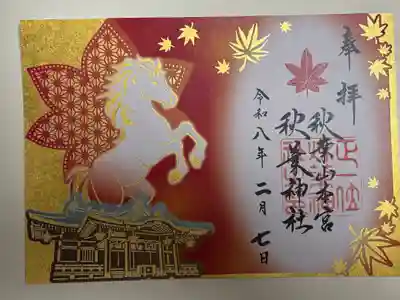 奉拝
秋葉山本宮
秋葉神社
令和八年 二月 七日
正一位